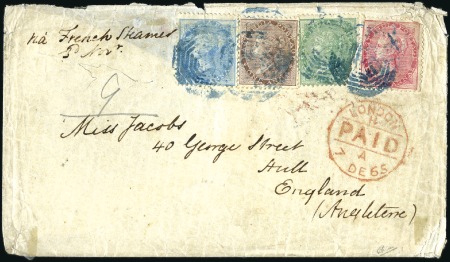 via French Steamer
9
Miss Jacobs
40 George Street
Hull
England
(Angleterre)
LONDON
PAID
A
7 DE 65